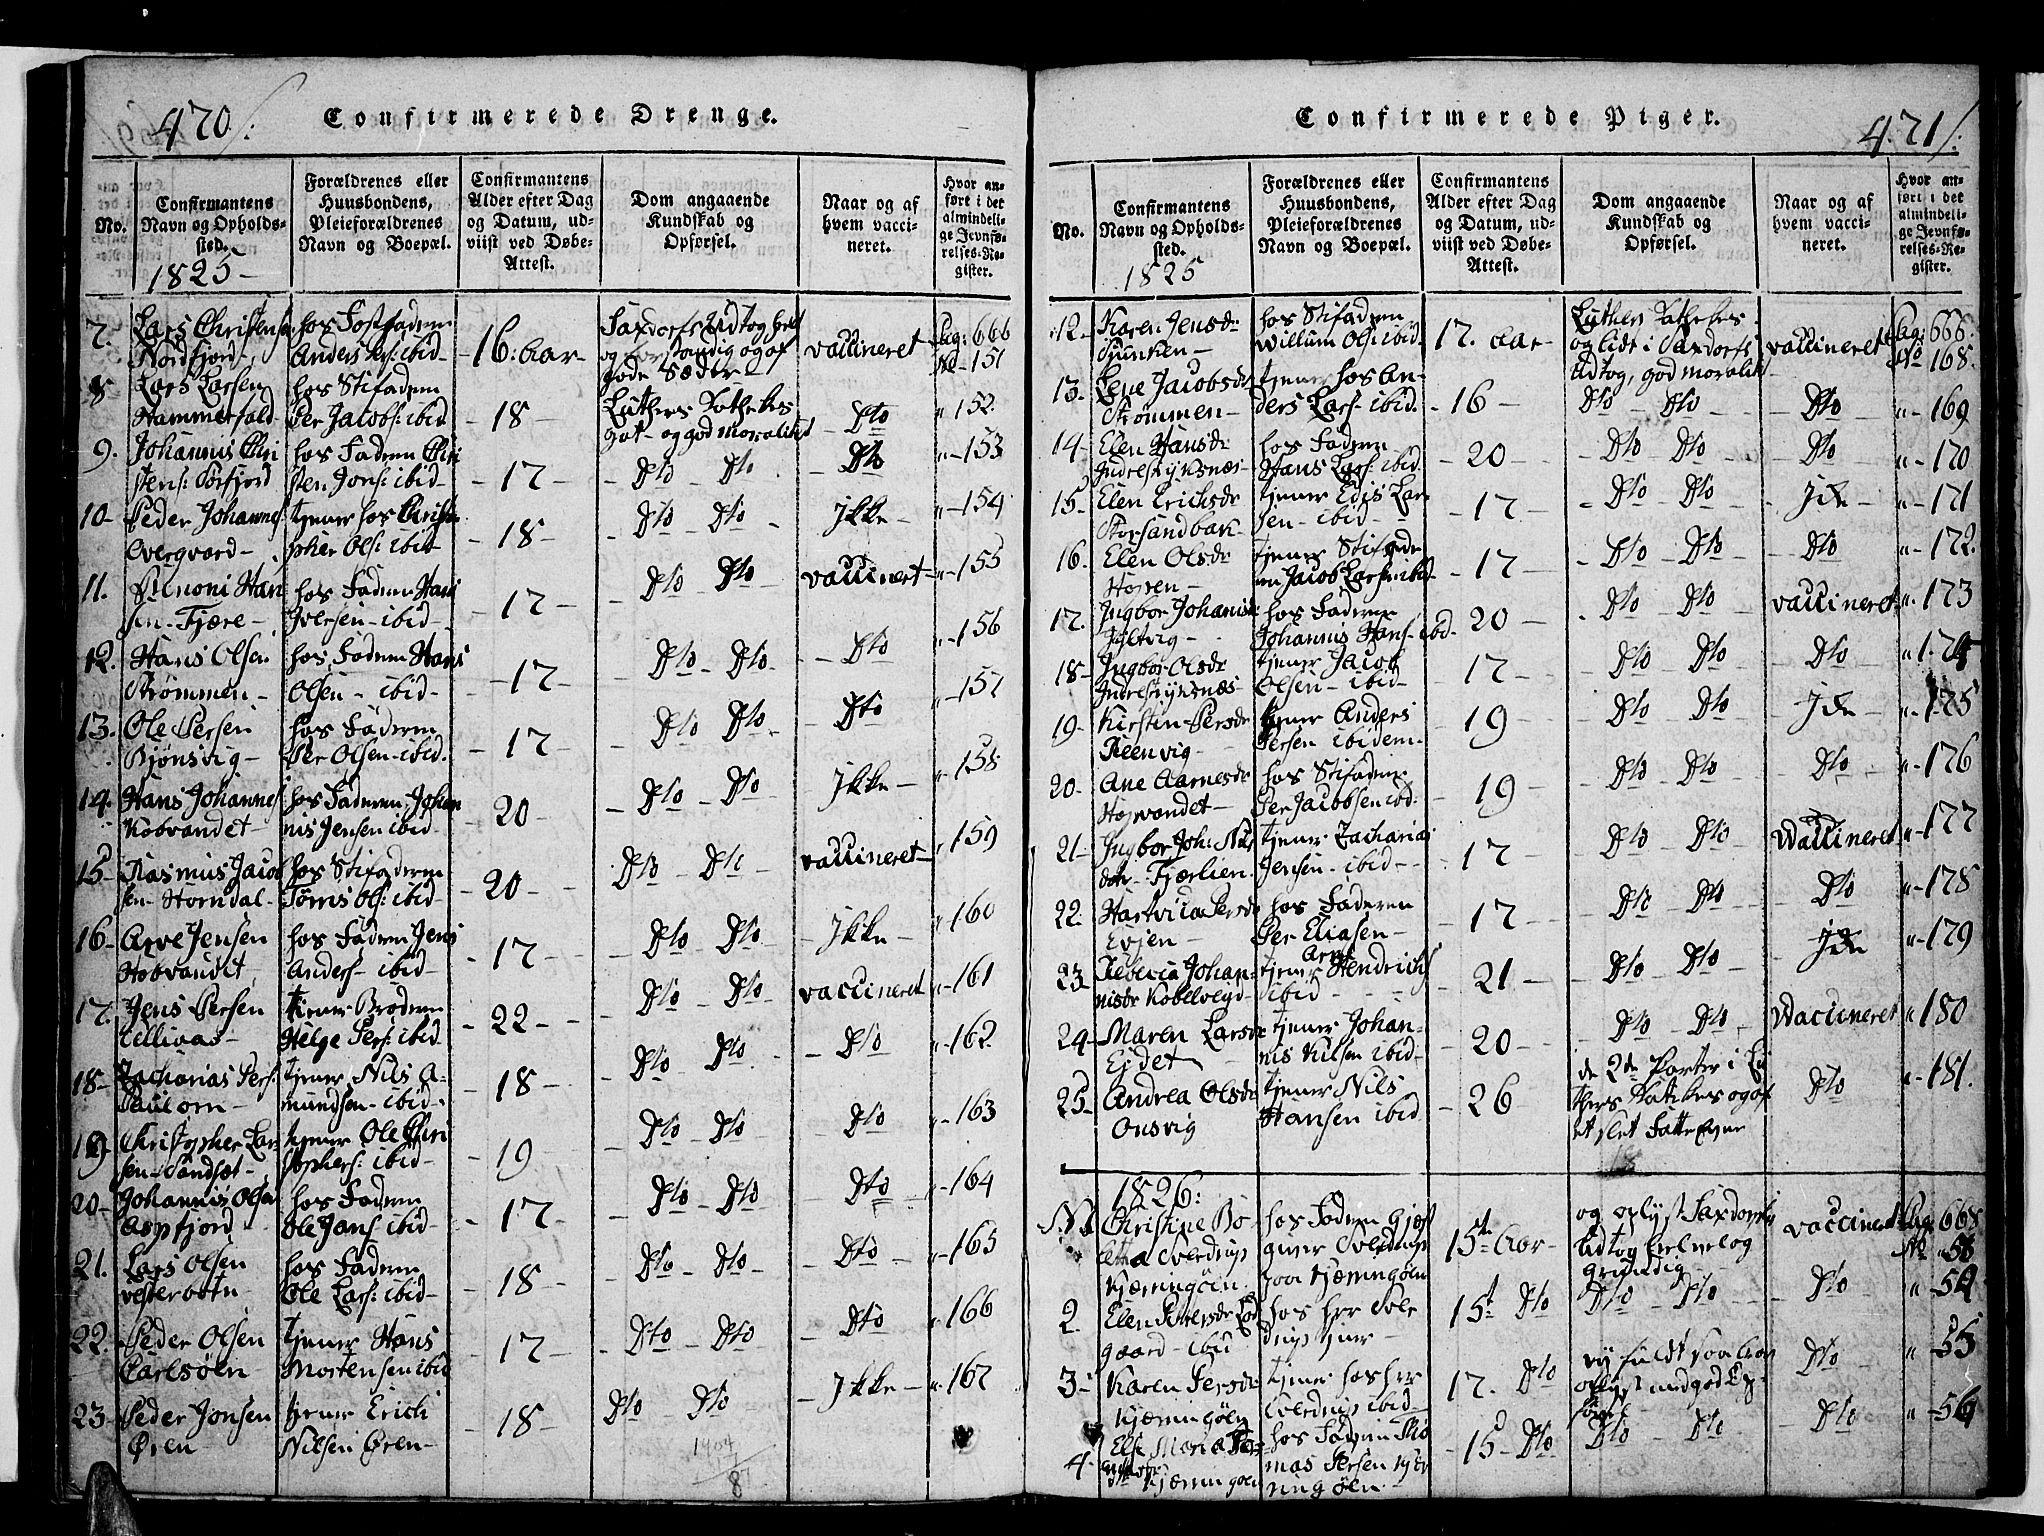 470/:
Confirmerede Drenge.
No.
Confirmantens Navn og Opholds-sted.
1825-
Forældrenes eller Huusbondens, Pleieforældrenes Navn og Boepæl.
Confirmantens Alder efter Dag og Datum, ud-viist ved Døbe-Attest.
Dom angaaende Kundskab og Opførsel.
Naar og af hvem vacci-neret.
Hvor an-ført i det almindeli-ge Jevnfø-relses-Re-gister.
7. Lars Christensen Nordfjord- hos Fostfaderen Anders Pers: ibid- 16: Aar- Saxdorfs Udtog og forstandig og af gode Sæder vaccineret Pag: 666 No- 151
8 Lars Larsen Hammerfald- hos Stifaderen Per Jacobs: ibid- 18- Luthers Kathekes got- og god moralitet Dto " 152.
9. Johannis Chri stens: Sørfjord hos Faderen Chri sten Jons: ibid- 17- Dto Dto Dto "-153
10- Peder Johannes Overgvard- tjener hos Christo pher Ols: ibid- 18- Dto Dto Ikke- "-154
11. Simoni Han sen- Fjære- hos Faderen Hans Iversen- ibid- 17- Dto Dto vaccineret- "-155
12. Hans Olsen Strømmen- hos Faderen Hans Olsen- ibid- -17- Dto- Dto Dto "-156
13. Ole Persen Bjønsvig- hos Faderen Per Olsen-ibid. -17- Dto Dto Dto "-157
14. Hans Johannes Kobvandet- hos Faderen Johan nis Jensen ibid- 20 Dto- Dto Ikke- "-158
15- Rasmus Jacob sen- Storndal- hos Stifaderen Tørris Ols: ibid- 20- Dto- Dto vaccineret- "-159
16- Arve Jensen Hobvandet hos Faderen Jens Anders- ibid- 17- Dto Dto Ikke- "160
17. Jens Persen Tellivas- tjener Broderen Helge Pers: ibid -22- Dto- Dto vaccineret "-161
18- Zacharias Pers: Paulorn- tjener Nils A- mundsen- ibid- -18- Dto- Dto Dto "-162.
19- Christopher Lar sen- Sandset- tjener Ole Chri stophers: ibid- -19- Dto- Dto Dto "-163
20- Johannis Olsen Aspfjord- hos Faderen Ole Jans: ibid- -17- Dto- Dto Dto "-164
21. Lars Olsen Vesterbotn hos Faderen Ole Lars: ibid- 18- Dto- Dto- Dto "-165
22. Peder Olsen Carlsøen- tjener Hans Mortensen ibid -17- Dto- Dto Dto "-166
23. Peder Jonsen Øren- tjener Erich Nilsen Øren- -18- Dto- Dto -Ikke- "-167
1904
8
Confirmerede Piger.
471/:
No.
Confirmantens Navn og Opholds-sted.
1825
Forældrenes eller Huusbondens, Pleieforældrenes Navn og Boepæl.
Confirmantens Alder efter Dag og Datum, ud-viist ved Døbe-Attest.
Dom angaaende Kundskab og Opførsel.
Naar og af hvem vacci-neret.
Hvor an-ført i det almindeli-ge Jevnfø-relses-Re-gister.
12- Karen Jensdr hos Stifaderen Willum Ols: ibid. 17. Aar- Luthers Kathekes og lidt i Saxdorfs Udtog, god moralitet vaccineret Pag: 666: No 168.
13. Lene Jacobsdr Strømmen- tjener hos An- ders Lars- ibid. -16- Dto- Dto- Dto "-169
14- Elen Hansdr Indrestrynsnæs- hos Faderen Hans Lars- ibid- -20- Dto Dto- Dto "-170
15- Elen Erichsdr Storsandbak- tjener Edis Lar sen- ibid- -17- Dto- Dto- Ide- "-171
16. Elen Olsdr Hopen- tjener Stifade ren Jacob Larsen ibid- -17- Dto Dto- Dto "-172.
17. Ingbor Johanisdr hos Faderen Johannis Hans- ibid- 20- Dto- Dto- vaccineret "-173
18- Ingbor Olsdr Indrestrynsnæs- tjener Jacob Olsen- ibid- -17- Dto- Dto Dto "174
19- Kirstin Persdr Reenvig- tjener Anders Persen ibidem- -19- Dto- Dto -Ide- "-175
20- Ane Aarnesdr Hopvandet- hos Stifaderen Per Jacobsen ibid: -19- Dto- Dto Dto "-176
21- Ingbor Joh: Nils datr- Fjærlien. tjener Zacharias Jensen- ibid- -17- Dto- Dto vaccineret "-177
22. Hartvica Persdr Evjen- hos Faderen Per Eliasen- -17- Dto Dto Dto "-178
23. Rebecca Johan- nisdr Kobelveyd- tjener Arnt Hendrichs ibid- -21- Dto- Dto Ide "-179
24- Maren Larsdr Ejdet- tjener Johan- nis Nilsen ibid- -20- Dto- Dto vaccineret " 180
25. Andrea Olsdr Onsvig tjener Nils Hansen ibid -26- de 2de Parter i Lu thers Katekes og af et slet Fatte Evne Dto "-181.
1826:
No 1 Christine Bo- letta Sverdrup Kjæringøen. hos Faderen Gjæst giver Sverdrup paa Kjæringøen 15de Aar- og oplyst Saxdorfs Udtog grundig- vaccineret Pag: 668 No "53
2. Elen Persdr gaard- ibid hos Herr Sver drup tjener- 15t Dto Dto- Dto- Dto "-54
3- Karen Persdr Kjæringøen tjener hos Herr Sverdrup ibid- 17. Dto Dto "-55
4. Else Maria Kjæringøen hos Faderen Tho mas Persen Kjær ringøen- -15- Dto Dto- Dto- Dto "-56